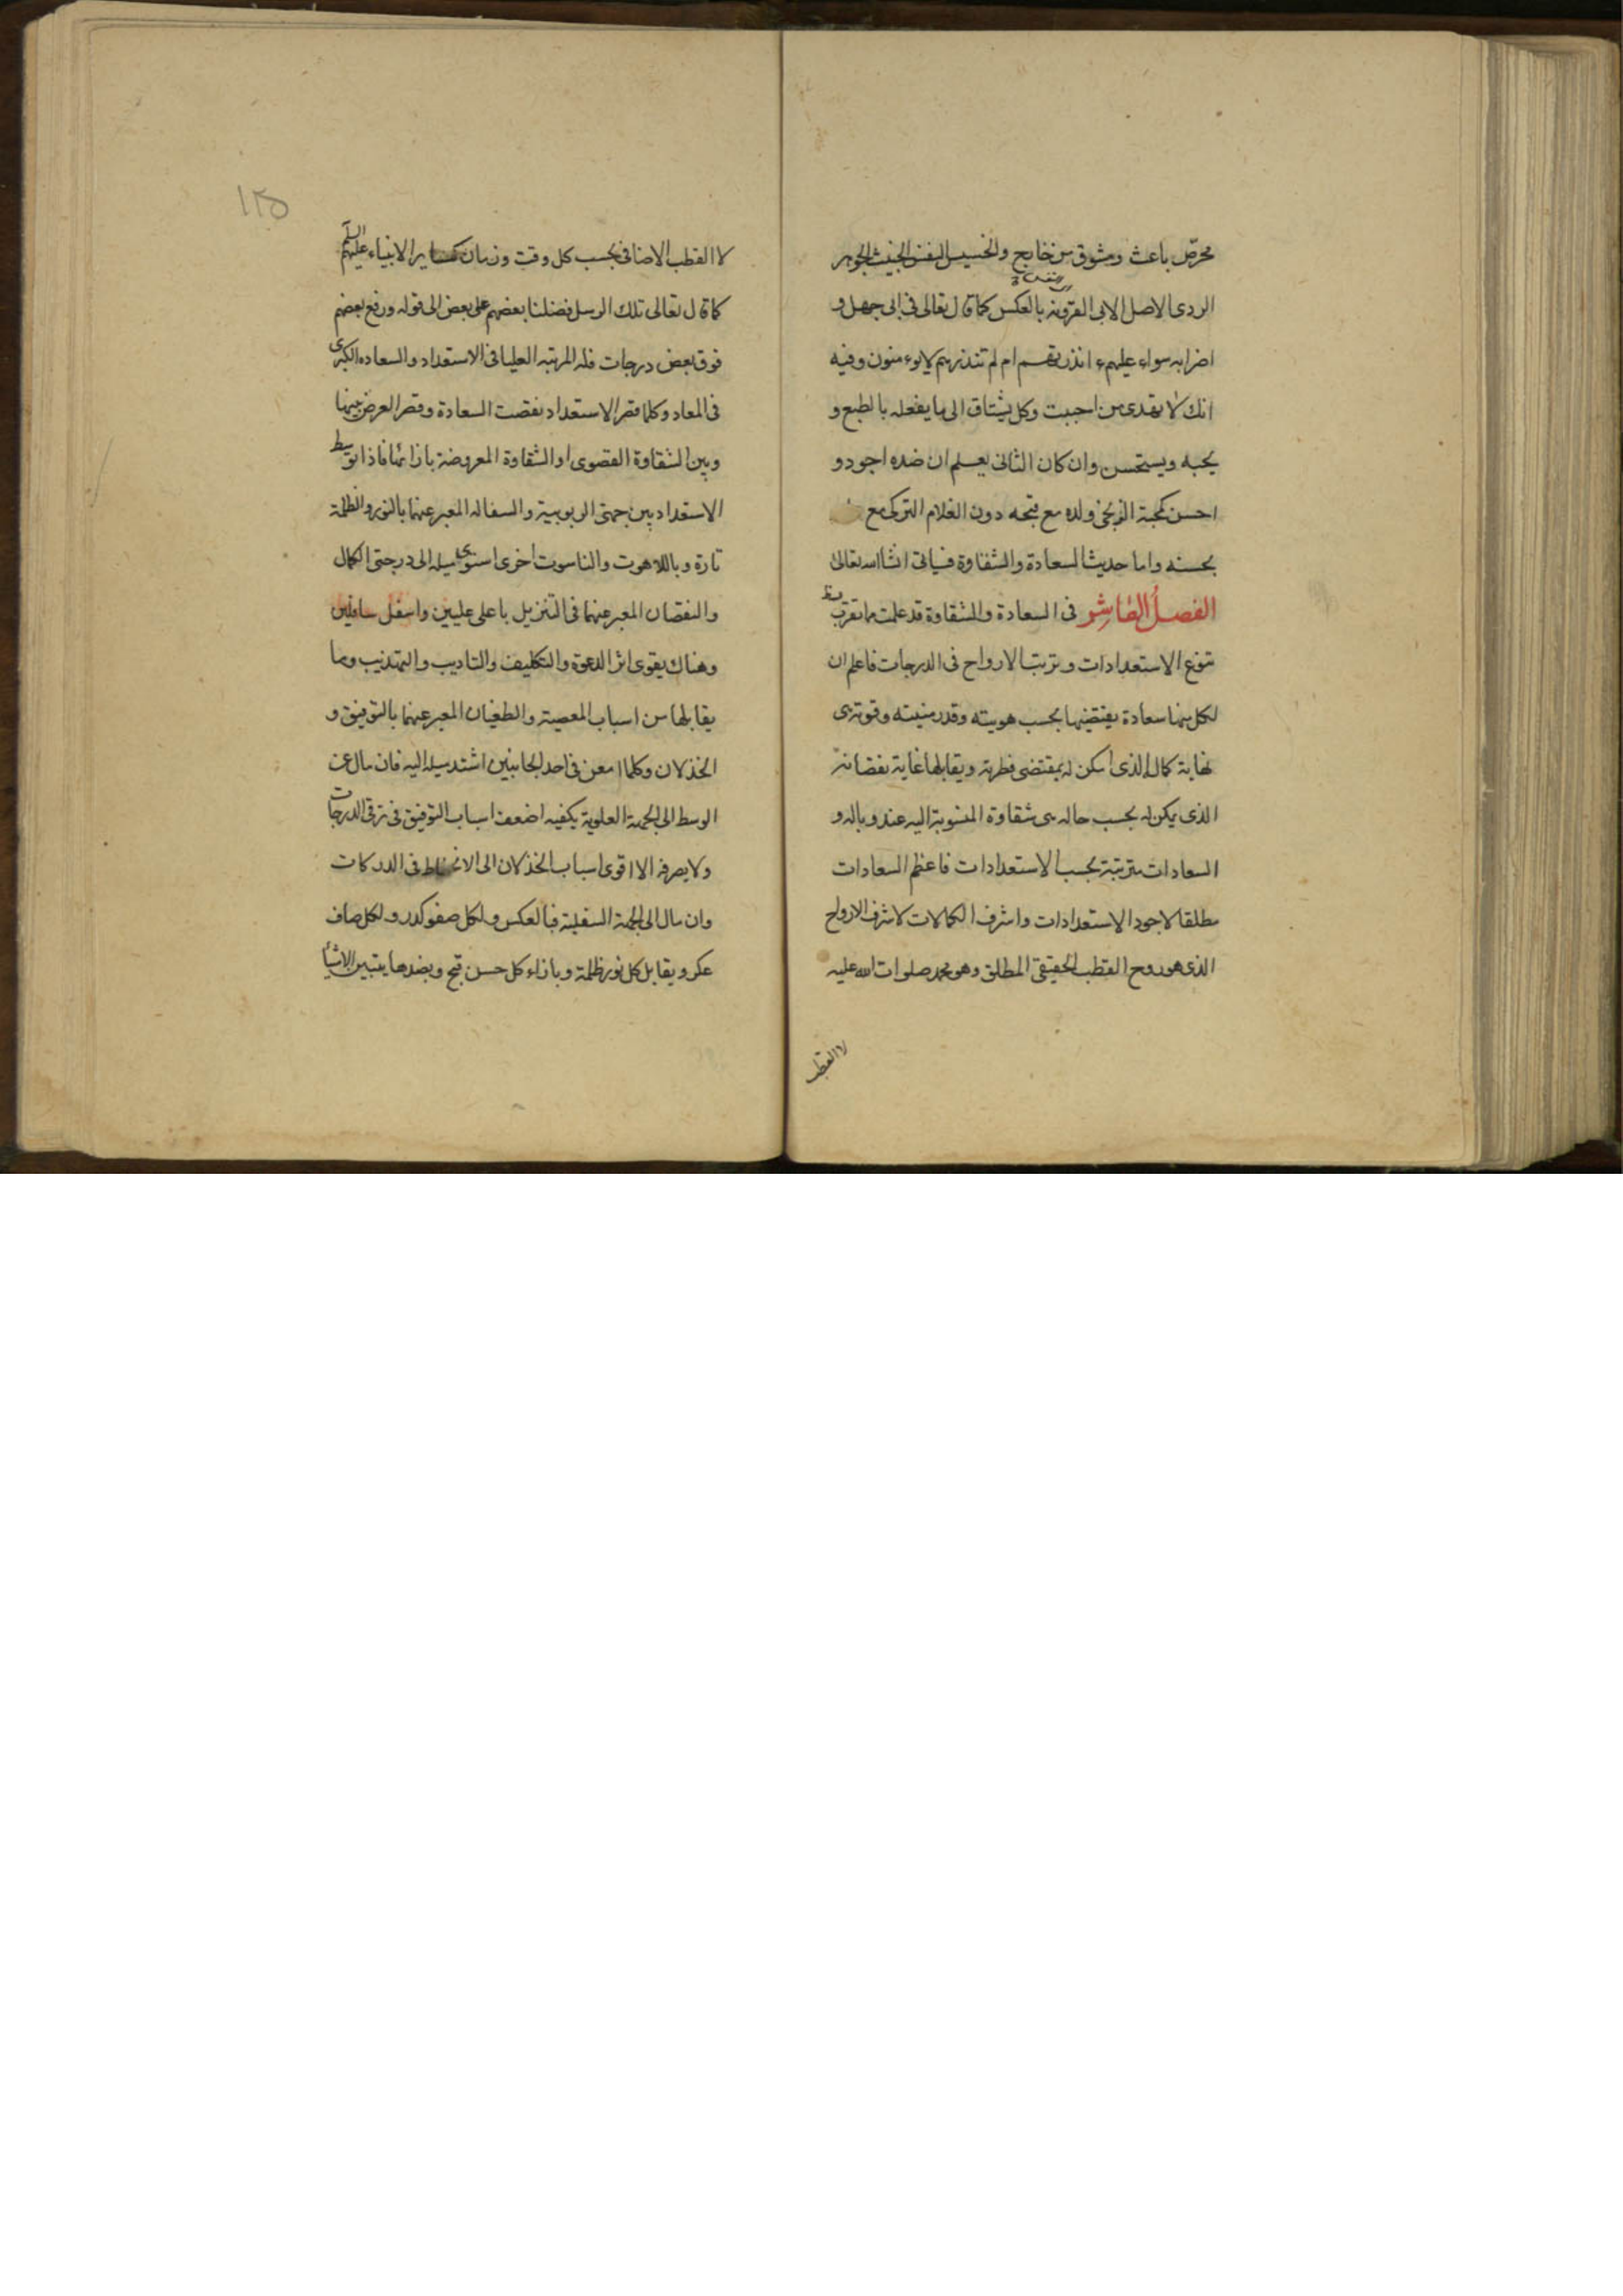 محرّض باعث ومشوق من خارج والخسيس النفس الخبيث الجوهر
الردى الاصل الابى القرونه بالعكس كما قال تعالى فى ابى جهل و
اضرابه سواء عليهم ءانذرتهم ام لم تنذرهم لا يوءمنون وفيه
انك لا تهدى من احببت وكل يشتاق الى ما يفعله بالطبع و
يحبه ويستحسن وان كان الثانى يعلم ان ضده اجود و
احسن كمحبة الزنجى ولده مع قبحه دون الغلام التركى مع
بحسنه واما حديث السعادة والشقاوة فسياتى انشاالله تعالى
الفصل العاشر فى السعادة والشقاوة قد علمت مما تقرب
تنوع الاستعدادات وترتب الارواح فى الدرجات فاعلم ان
لكل منها سعادة يقتضيها بحسب هويته وقدر منيته وقوته هى
نهاية كماله الذى امكن له بمقتضى فطرته ويقابلها غاية نقصانه
الذى يمكن له بحسب حاله هى شقاوة المنسوبة اليه عند وباله و
السعادات مترتبة بحسب الاستعدادات فاعظم السعادات
مطلقا لاجود الاستعدادات واشرف الكمالات لاشرف الارواح
الذى هو روح القطب الحقيقى المطلق وهو محمد صلوات الله عليه
لا القطب
١٢٥
لا القطب الاضافى بحسب كل وقت وزمان كساير الانبياء عليهم السلم
كما قال تعالى تلك الرسل فضلنا بعضهم على بعض الى قوله ورفع بعضهم
فوق بعض درجات فله المرتبه العليا فى الاستعداد والسعاده الكبرى
فى المعاد وكلما قصر الاستعداد نقصت السعادة وقصر العرض بينها
وبين الشقاوة القصوى او الشقاوة المعروضة بازائها فاذا توسط
الاستعداد بين جهتى الربوبية والسفاله المعبر عنهما بالنور والظلمة
تارة وباللاهوت والناسوت اخرى استوى ميله الى درجتى الكمال
والنقصان المعبر عنهما فى التنزيل باعلى عليين واسفل سافلين
وهناك يقوى اثر الدعوة والتكليف والتاديب والتهذيب وما
يقابلها من اسباب المعصية والطغيان المعبر عنهما بالتوفيق و
الخذلان وكلما امعن فى احد الجانبين اشتد ميله اليه فان مال عن
الوسط الى الجهة العلوية يكفيه اضعف اسباب التوفيق فى ترقى الدرجات
ولا يصرفه الا اقوى اسباب الخذلان الى الانحطاط فى الدركات
وان مال الى الجهة السفلية فبالعكس ولكل صفو كدر ولكل صاف
عكر ويقابل كل نور ظلمة وبازاء كل حسن قبح وبضدها يتبين الاشيا